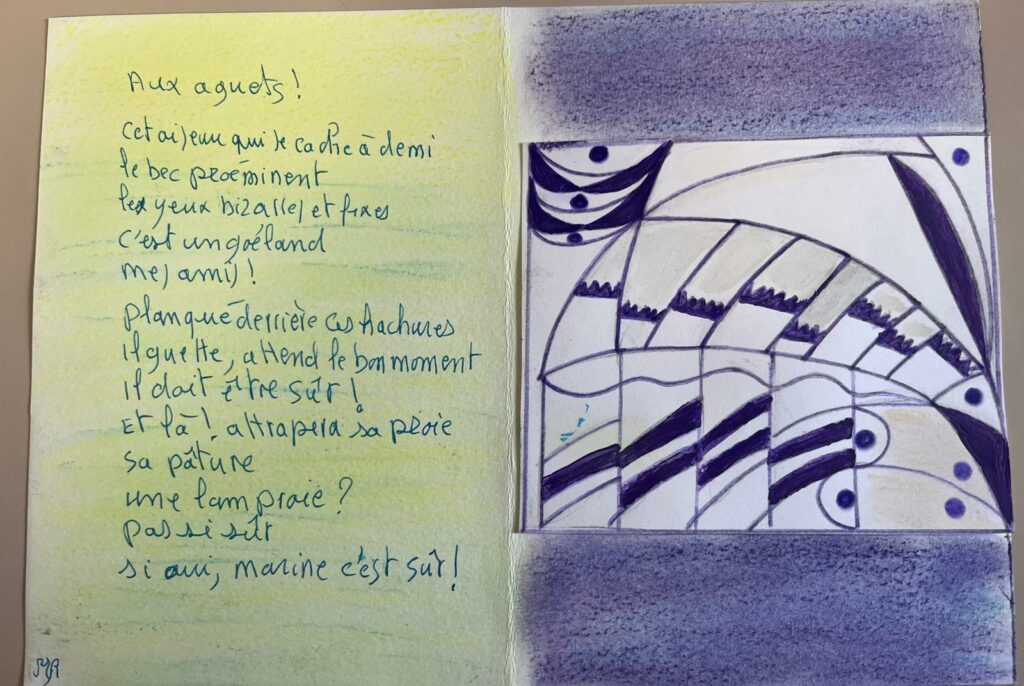 Aux aguets !
Cet oiseau qui se cache à demi
le bec proéminent
les yeux bizarres et fixes
c'est un goéland
mes amis !
planqué derrière ces hachures
il guette, attend le bon moment
il doit être sûr !
Et là !, attrapera sa proie
sa pâture
une lamproie ?
pas si sûr
si oui, marine c'est sûr !
MR